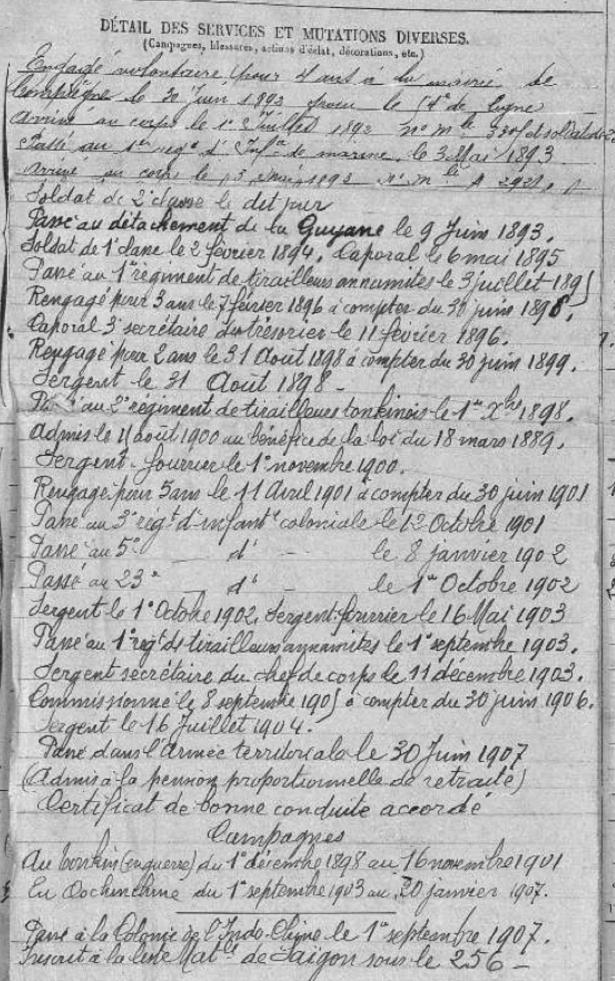 DÉTAIL DES SERVICES ET MUTATIONS DIVERSES.
(Campagnes, blessures, actions d'éclat, décorations, etc.)
Engagé volontaire pour 4 ans à la mairie de
Compiègne le 30 Juin 1892 pour le 54e de ligne
Arrivé au corps le 1er Juillet 1892 No Mle et soldat de 2e
Passé au 1er régt d'Infie de marine le 3 Mai 1893
Arrivé au corps le 5 Mai 1893 No Mle
Soldat de 2e classe le dit jour
Passé au détachement de la Guyane le 9 Juin 1893.
Soldat de 1e classe le 2 février 1894. Caporal le 6 mai 1895
Passé au 1er régiment de tirailleurs annamites le 3 juillet 1895
Rengagé pour 3 ans le 7 février 1896 à compter du 30 juin 1896.
Caporal 3e secrétaire du trésorier le 11 février 1896.
Rengagé pour 2 ans le 31 Août 1898 à compter du 30 juin 1899.
Sergent le 31 Août 1898 -
Passé au 2e régiment de tirailleurs tonkinois le 1er Xbre 1898.
Admis le 11 août 1900 au bénéfice de la loi du 18 mars 1889.
Sergent-fourrier le 1er novembre 1900.
Rengagé pour 5 ans le 11 Avril 1901 à compter du 30 juin 1901
Passé au 3e régt d'infantie coloniale le 12 Octobre 1901
Passé au 5e - do - le 8 janvier 1902
Passé au 23e do - le 1er Octobre 1902
Sergent le 1er Octobre 1902. Sergent-fourrier le 16 Mai 1903
Passé au 1er régt de tirailleurs annamites le 1er septembre 1903.
Sergent secrétaire du chef de corps le 11 décembre 1903.
Commissionné le 8 septembre 1905 à compter du 30 juin 1906.
Sergent le 16 Juillet 1904.
Passé dans l'Armée territoriale le 30 Juin 1907
(Admis à la pension proportionnelle de retraite)
Certificat de bonne conduite accordé
Campagnes
Au Tonkin (en guerre) du 1er décembre 1898 au 16 novembre 1901
En Cochinchine du 1er septembre 1903 au 20 janvier 1907.
Passé à la Colonie de l'Indo-Chine le 1er septembre 1907.
Inscrit à la liste Matle de Saigon sous le 256 -